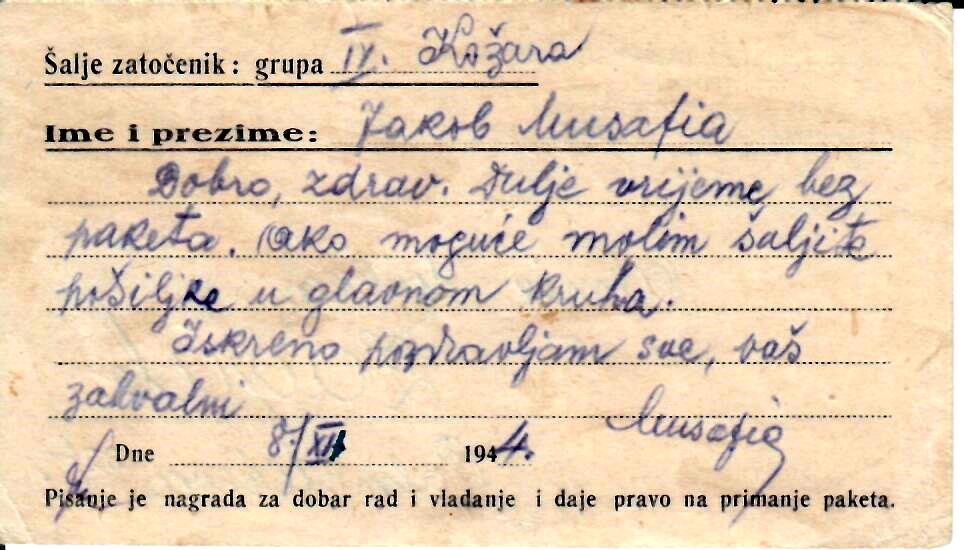 Šalje zatočenik: grupa IV. Kožara
Ime i prezime: Jakob Musafia
Dobro, zdrav. Dulje vrijeme bez
paketa. Ako moguće molim šaljite
pošiljke u glavnom kruha.
Iskreno pozdravljam sve, vaš
zahvalni Musafia
Dne 8/XII 1944.
Pisanje je nagrada za dobar rad i vladanje i daje pravo na primanje paketa.